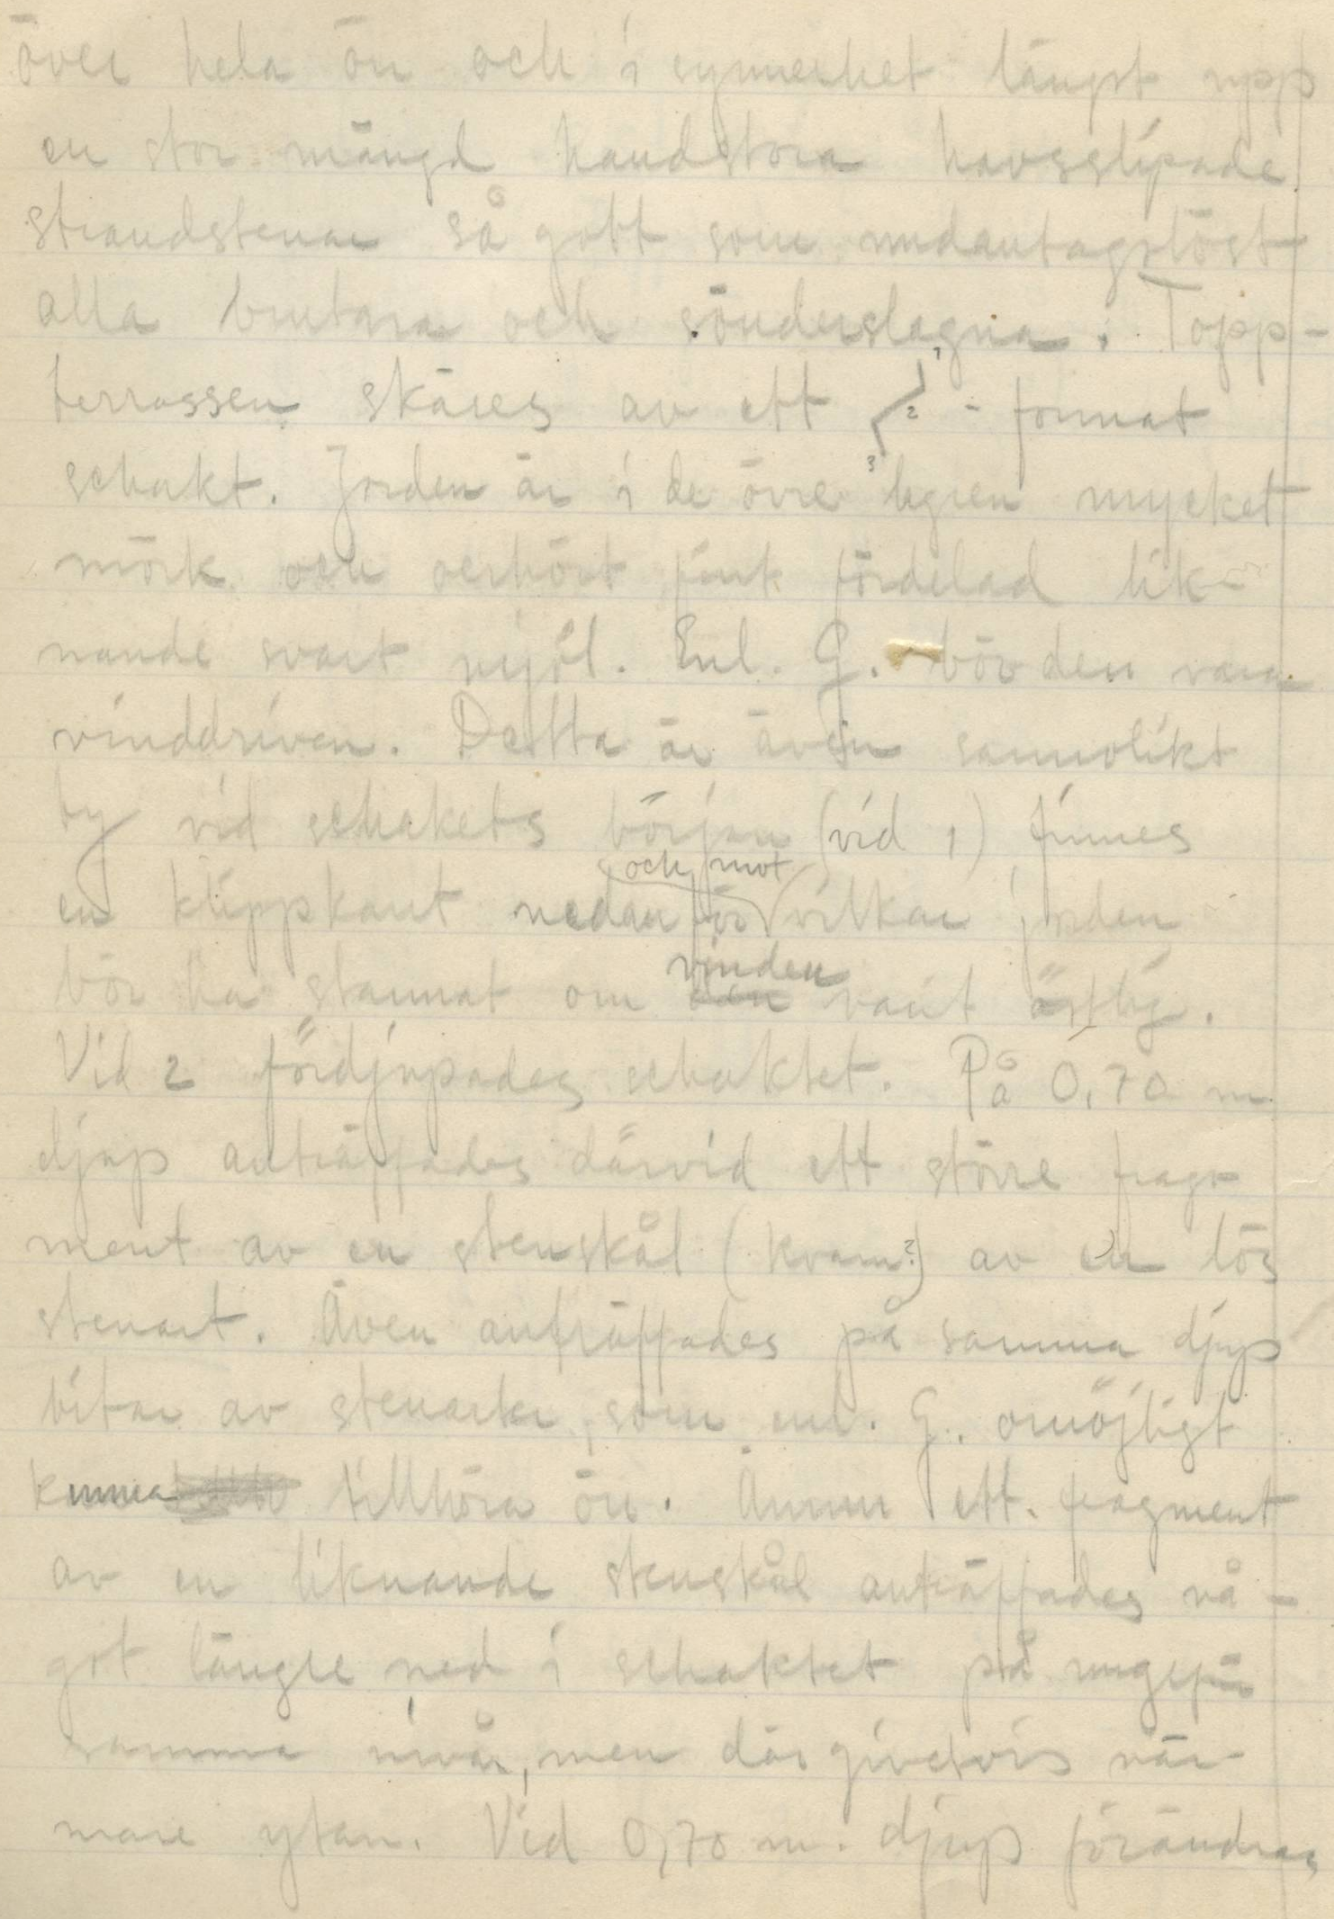 över hela ön och i synnerhet längst upp
en stor mängd handstora havsslipade
strandstenar så gott som undantagslöst
alla brutna och sönderslagna. Topp-
terrassen skäres av ett 1 2 3 - format
schakt. Jorden är i de övre lagren mycket
mörk och oerhört fint fördelad lik-
nande svart mjöl. Enl. G. bör den vara
vinddriven. Detta är även sannolikt
ty vid schakets början (vid 1) finnes
en klippkant nedan för och mot vilkar jorden
bör ha stannat om vinden varit östlig.
Vid 2 fördjupades schaktet. På 0,70 m
djup anträffades därvid ett större frag-
ment av en stenskål (kvarn?) av en lös
stenart. Även anträffades på samma djup
bitar av stenarter, som enl. G. omöjligt
kunna tillhöra ön. Ännu ett fragment
av en liknande stenskål anträffades nå-
got längre ned i schaktet på ungefär
samma nivå, men där givetvis när-
mare ytan. Vid 0,70 m. djup förändras